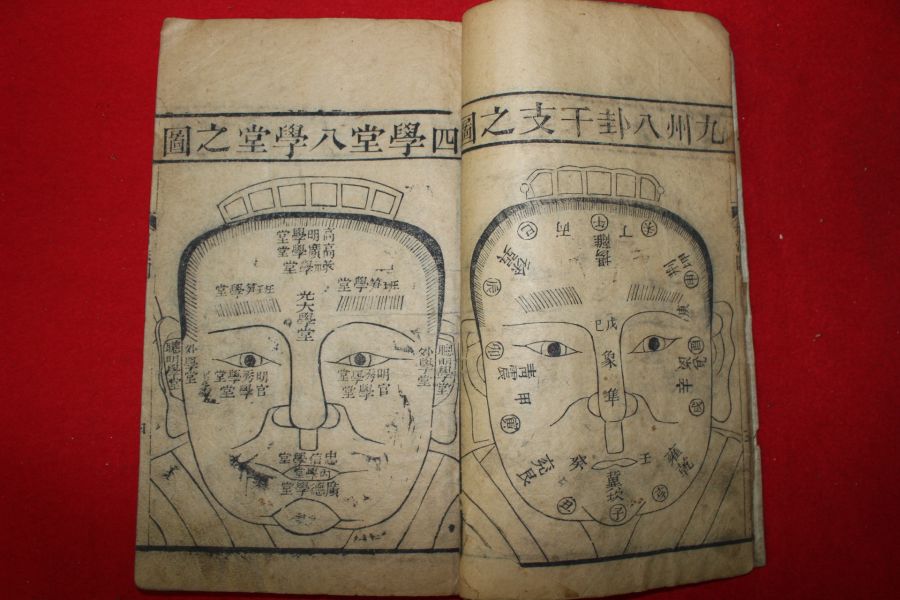 九州八卦干支之圖
癸
丁
午
丙
巳
離
揚
坤
荊
辰
戌
巳
卯
震
青
甲
寅
辛
兌
乾
雍
壬
癸
艮
兗
冀
坎
子
亥
丑
四學堂八學堂之圖
高明學堂
高廣學堂
學堂
班笋學堂
班笋學堂
光大學堂
聰明學堂
外學堂
外學堂
聰明學堂
明秀學堂
官學堂
明秀學堂
官學堂
忠信學堂
內學堂
廣德學堂